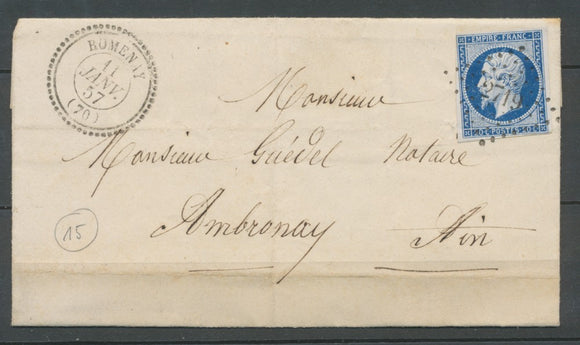 ROMENAY
11
JANV.
57
(70)
EMPIRE FRANC.
2719
20c POSTES 20c
Monsieur
Monsieur Guédel Notaire
Ambronay Ain
15